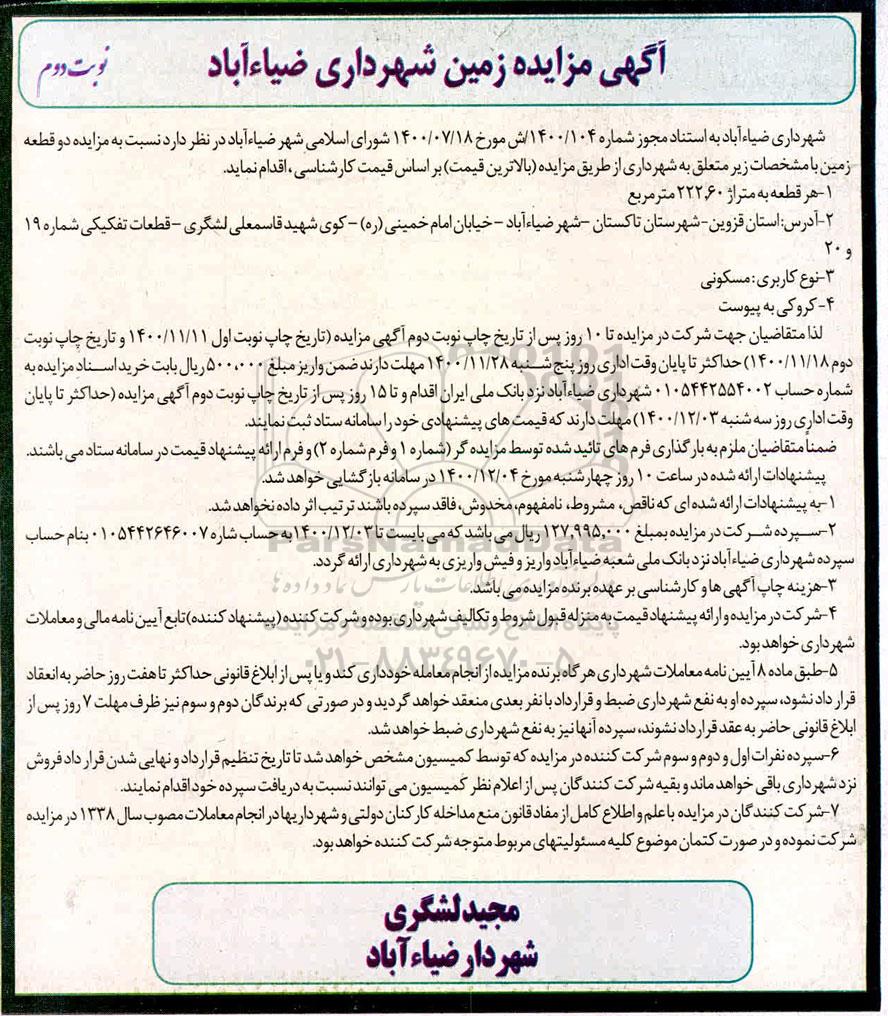 آگهی مزایده زمین شهرداری ضیاءآباد
نوبت دوم
شهرداری ضیاءآباد به استناد مجوز شماره ۱۴۰۰/۱۰۴/ش مورخ ۱۴۰۰/۰۷/۱۸ شورای اسلامی شهر ضیاءآباد در نظر دارد نسبت به مزایده دو قطعه
زمین با مشخصات زیر متعلق به شهرداری از طریق مزایده (بالاترین قیمت) بر اساس قیمت کارشناسی، اقدام نماید.
۱-هر قطعه به متراژ ۲۲۲٫۶۰ متر مربع
۲-آدرس: استان قزوین-شهرستان تاکستان -شهر ضیاءآباد -خیابان امام خمینی (ره) -کوی شهید قاسمعلی لشگری -قطعات تفکیکی شماره ۱۹
و ۲۰
۳-نوع کاربری: مسکونی
۴-کروکی به پیوست
لذا متقاضیان جهت شرکت در مزایده تا ۱۰ روز پس از تاریخ چاپ نوبت دوم آگهی مزایده (تاریخ چاپ نوبت اول ۱۴۰۰/۱۱/۱۱ و تاریخ چاپ نوبت
دوم ۱۴۰۰/۱۱/۱۸) حداکثر تا پایان وقت اداری روز پنج شنبه ۱۴۰۰/۱۱/۲۸ مهلت دارند ضمن واریز مبلغ ۵۰۰،۰۰۰ ریال بابت خرید اسناد مزایده به
شماره حساب ۰۱۰۵۴۴۲۵۵۴۰۰۲ شهرداری ضیاءآباد نزد بانک ملی ایران اقدام و تا ۱۵ روز پس از تاریخ چاپ نوبت دوم آگهی مزایده (حداکثر تا پایان
وقت اداری روز سه شنبه ۱۴۰۰/۱۲/۰۳) مهلت دارند که قیمت های پیشنهادی خود را سامانه ستاد ثبت نمایند.
ضمناً متقاضیان ملزم به بارگذاری فرم های تائید شده توسط مزایده گر (شماره ۱ و فرم شماره ۲) و فرم ارائه پیشنهاد قیمت در سامانه ستاد می باشند.
پیشنهادات ارائه شده در ساعت ۱۰ روز چهارشنبه مورخ ۱۴۰۰/۱۲/۰۴ در سامانه بازگشایی خواهد شد.
۱-به پیشنهادات ارائه شده ای که ناقص، مشروط، نامفهوم، مخدوش، فاقد سپرده باشند ترتیب اثر داده نخواهد شد.
۲-سپرده شرکت در مزایده بمبلغ ۱۲۷,۹۹۵,۰۰۰ ریال می باشد که می بایست تا ۱۴۰۰/۱۲/۰۳ به حساب شاره ۰۱۰۵۴۴۲۶۴۶۰۰۷ بنام حساب
سپرده شهرداری ضیاءآباد نزد بانک ملی شعبه ضیاءآباد واریز و فیش واریزی به شهرداری ارائه گردد.
۳-هزینه چاپ آگهی ها و کارشناسی بر عهده برنده مزایده می باشد.
۴-شرکت در مزایده و ارائه پیشنهاد قیمت به منزله قبول شروط و تکالیف شهرداری بوده و شرکت کننده (پیشنهاد کننده) تابع آیین نامه مالی و معاملات
شهرداری خواهد بود.
۵-طبق ماده ۸ آیین نامه معاملات شهرداری هر گاه برنده مزایده از انجام معامله خودداری کند و یا پس از ابلاغ قانونی حداکثر تا هفت روز حاضر به انعقاد
قرار داد نشود، سپرده او به نفع شهرداری ضبط و قرارداد با نفر بعدی منعقد خواهد گردید و در صورتی که برندگان دوم و سوم نیز ظرف مهلت ۷ روز پس از
ابلاغ قانونی حاضر به عقد قرارداد نشوند، سپرده آنها نیز به نفع شهرداری ضبط خواهد شد.
۶-سپرده نفرات اول و دوم و سوم شرکت کننده در مزایده که توسط کمیسیون مشخص خواهد شد تا تاریخ تنظیم قرارداد و نهایی شدن قرارداد فروش
نزد شهرداری باقی خواهد ماند و بقیه شرکت کنندگان پس از اعلام نظر کمیسیون می توانند نسبت به دریافت سپرده خود اقدام نمایند.
۷-شرکت کنندگان در مزایده با علم و اطلاع کامل از مفاد قانون منع مداخله کارکنان دولتی و شهرداریها در انجام معاملات مصوب سال ۱۳۳۸ در مزایده
شرکت نموده و در صورت کتمان موضوع کلیه مسئولیتهای مربوط متوجه شرکت کننده خواهد بود.
مجید لشگری
شهردار ضیاءآباد
ParsNamadData
پایگاه اطلاع رسانی مناقصه و مزایده
۰۲۱-۸۸۳۴۹۶۷۰-۵